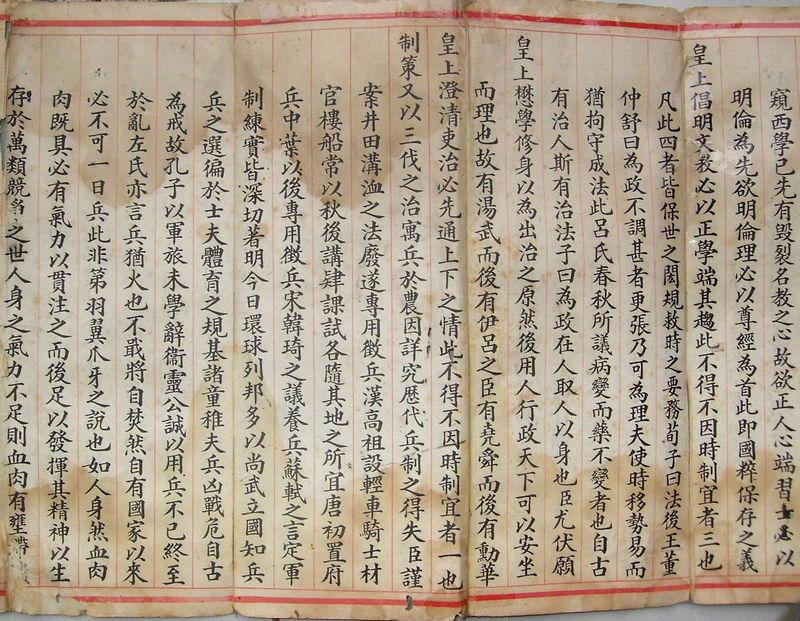 窺西學已先有毀裂名教之心故欲正人心端習士必以
明倫為先欲明倫理必以尊經為首此即國粹保存之義
皇上倡明文教必以正學端其趨此不得不因時制宜者三也
凡此四者皆保世之閎規救時之要務荀子曰法後王董
仲舒曰為政不調甚者更張乃可為理夫使時移勢易而
猶拘守成法此呂氏春秋所議病變而藥不變者也自古
有治人斯有治法子曰為政在人取人以身也臣尤伏願
皇上懋學修身以為出治之原然後用人行政天下可以安坐
而理也故有湯武而後有伊呂之臣有堯舜而後有勳華
皇上澄清吏治必先通上下之情此不得不因時制宜者一也
制策又以三代之治寓兵於農因詳究歷代兵制之得失臣謹
案井田溝洫之法廢遂專用徵兵漢高祖設輕車騎士材
官樓船常以秋後講肄課試各隨其地之所宜唐初置府
兵中葉以後專用徵兵宋韓琦之議養兵蘇軾之言定軍
制練實皆深切著明今日環球列邦多以尚武立國知兵
兵之選徧於士夫體育之規基諸童稚夫兵凶戰危自古
為戒故孔子以軍旅未學辭衞靈公誠以用兵不已終至
於亂左氏亦言兵猶火也不戢將自焚然自有國家以來
必不可一日兵此非第羽翼爪牙之說也如人身然血肉
肉既具必有氣力以貫注之而後足以發揮其精神以生
存於萬類競爭之世人身之氣力不足則血肉有壅滯